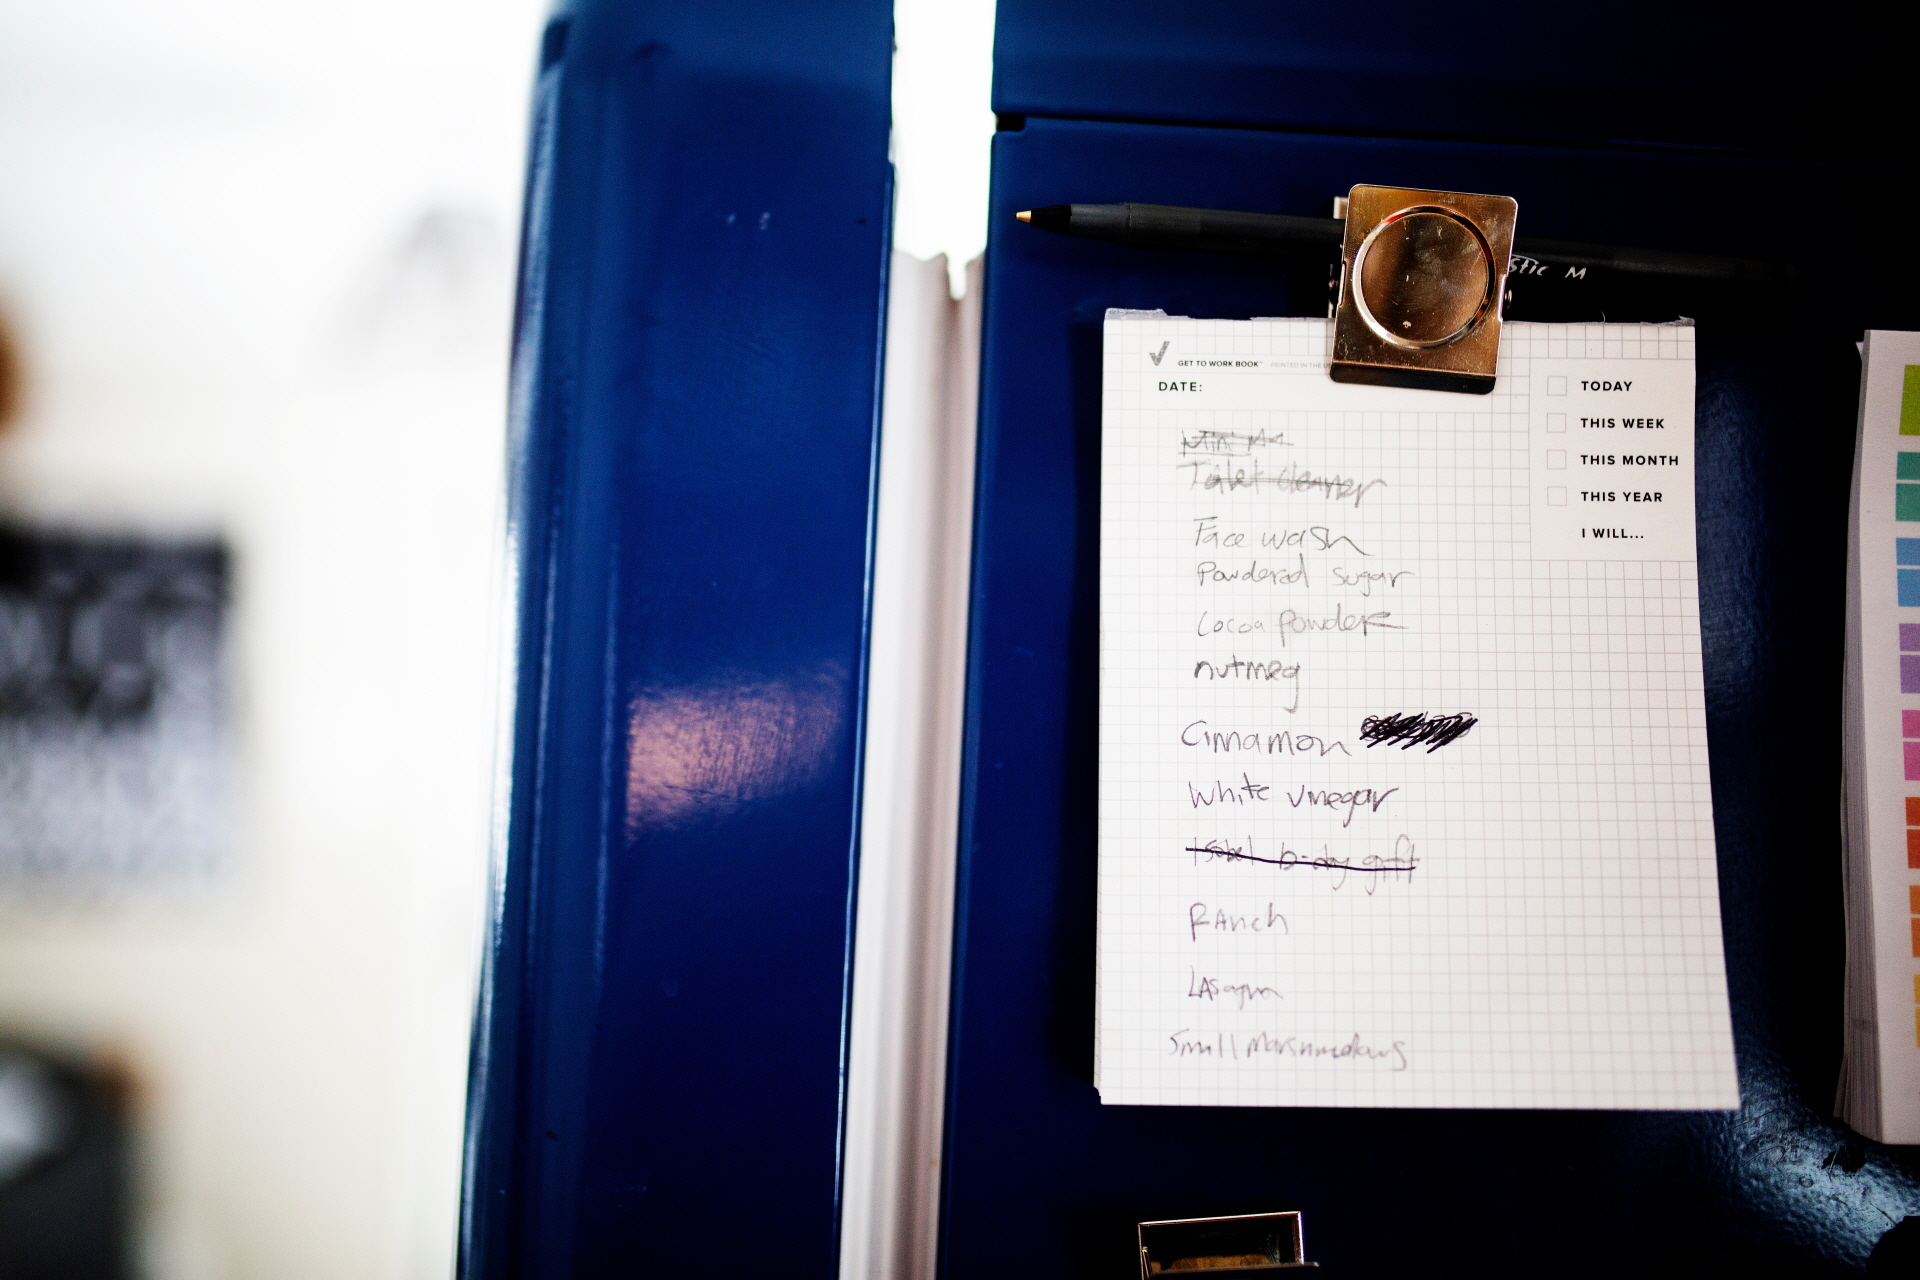 stic M
GET TO WORK BOOK™ PRINTED IN THE
DATE:
TODAY
THIS WEEK
THIS MONTH
THIS YEAR
I WILL...
Toilet cleaner
Face wash
Powdered sugar
Cocoa Powder
nutmeg
Cinnamon
White vinegar
Isabel b-day gift
RAnch
LAsagna
Small Marshmalows